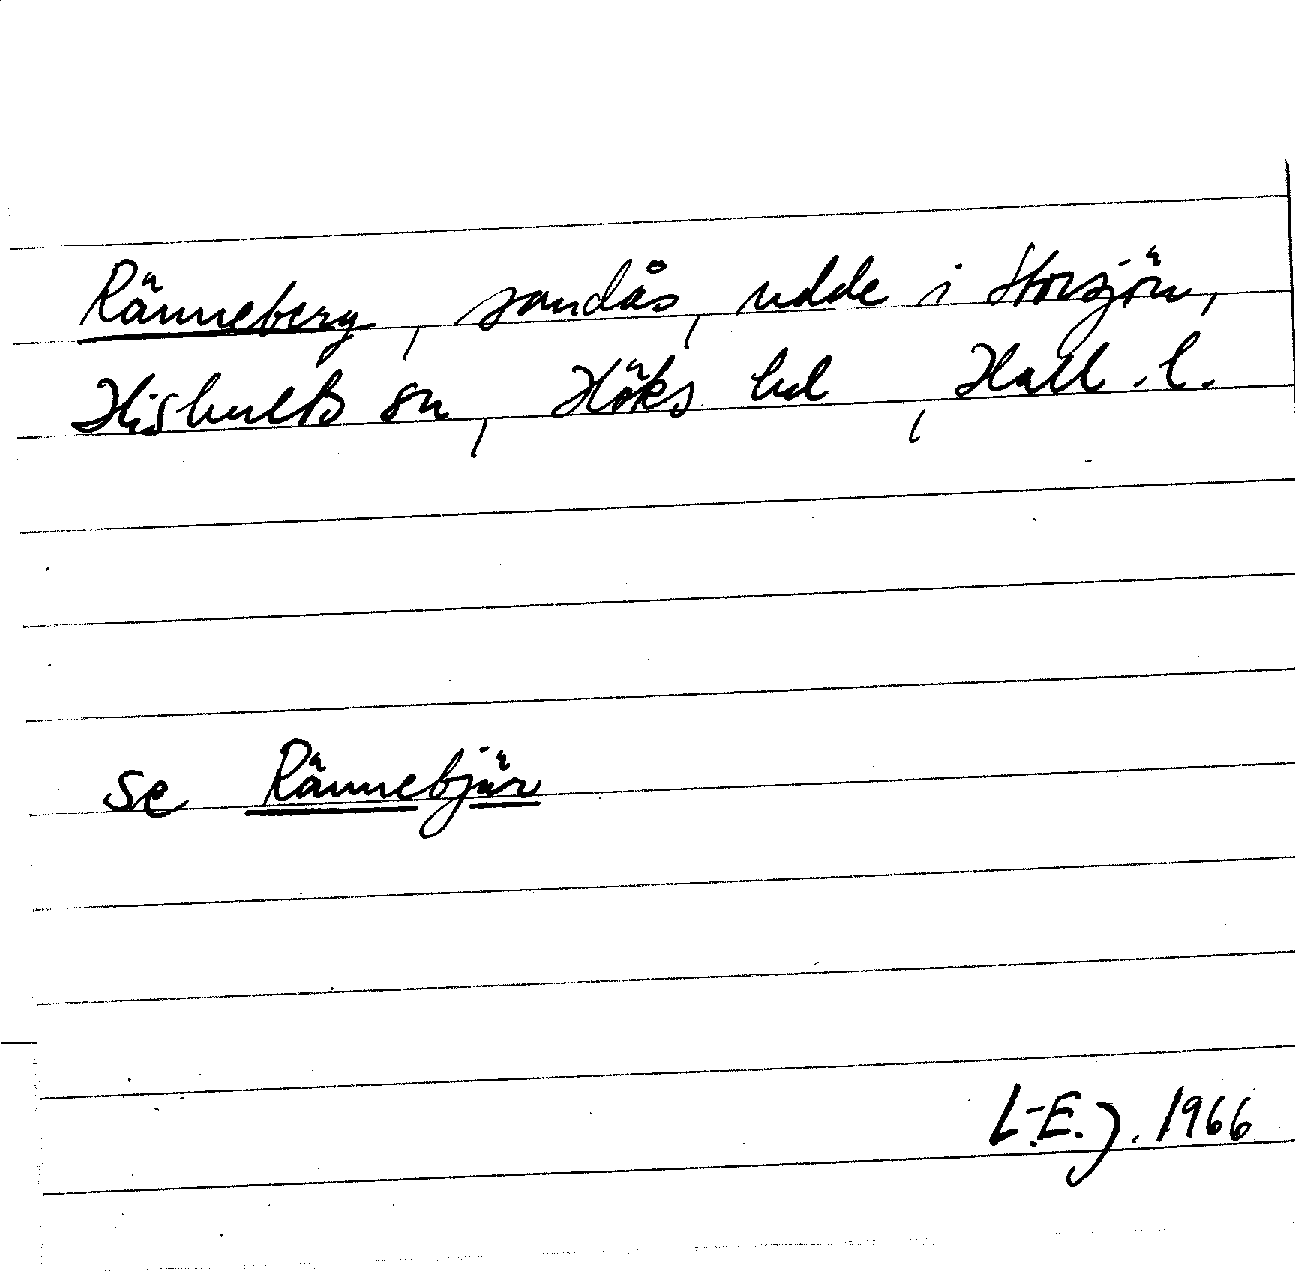 Ränneberg, sandås, udde i Storsjön,
Hishults sn, Höks hd, Hall. l.
se Rännebjär
L.-E. J. 1966